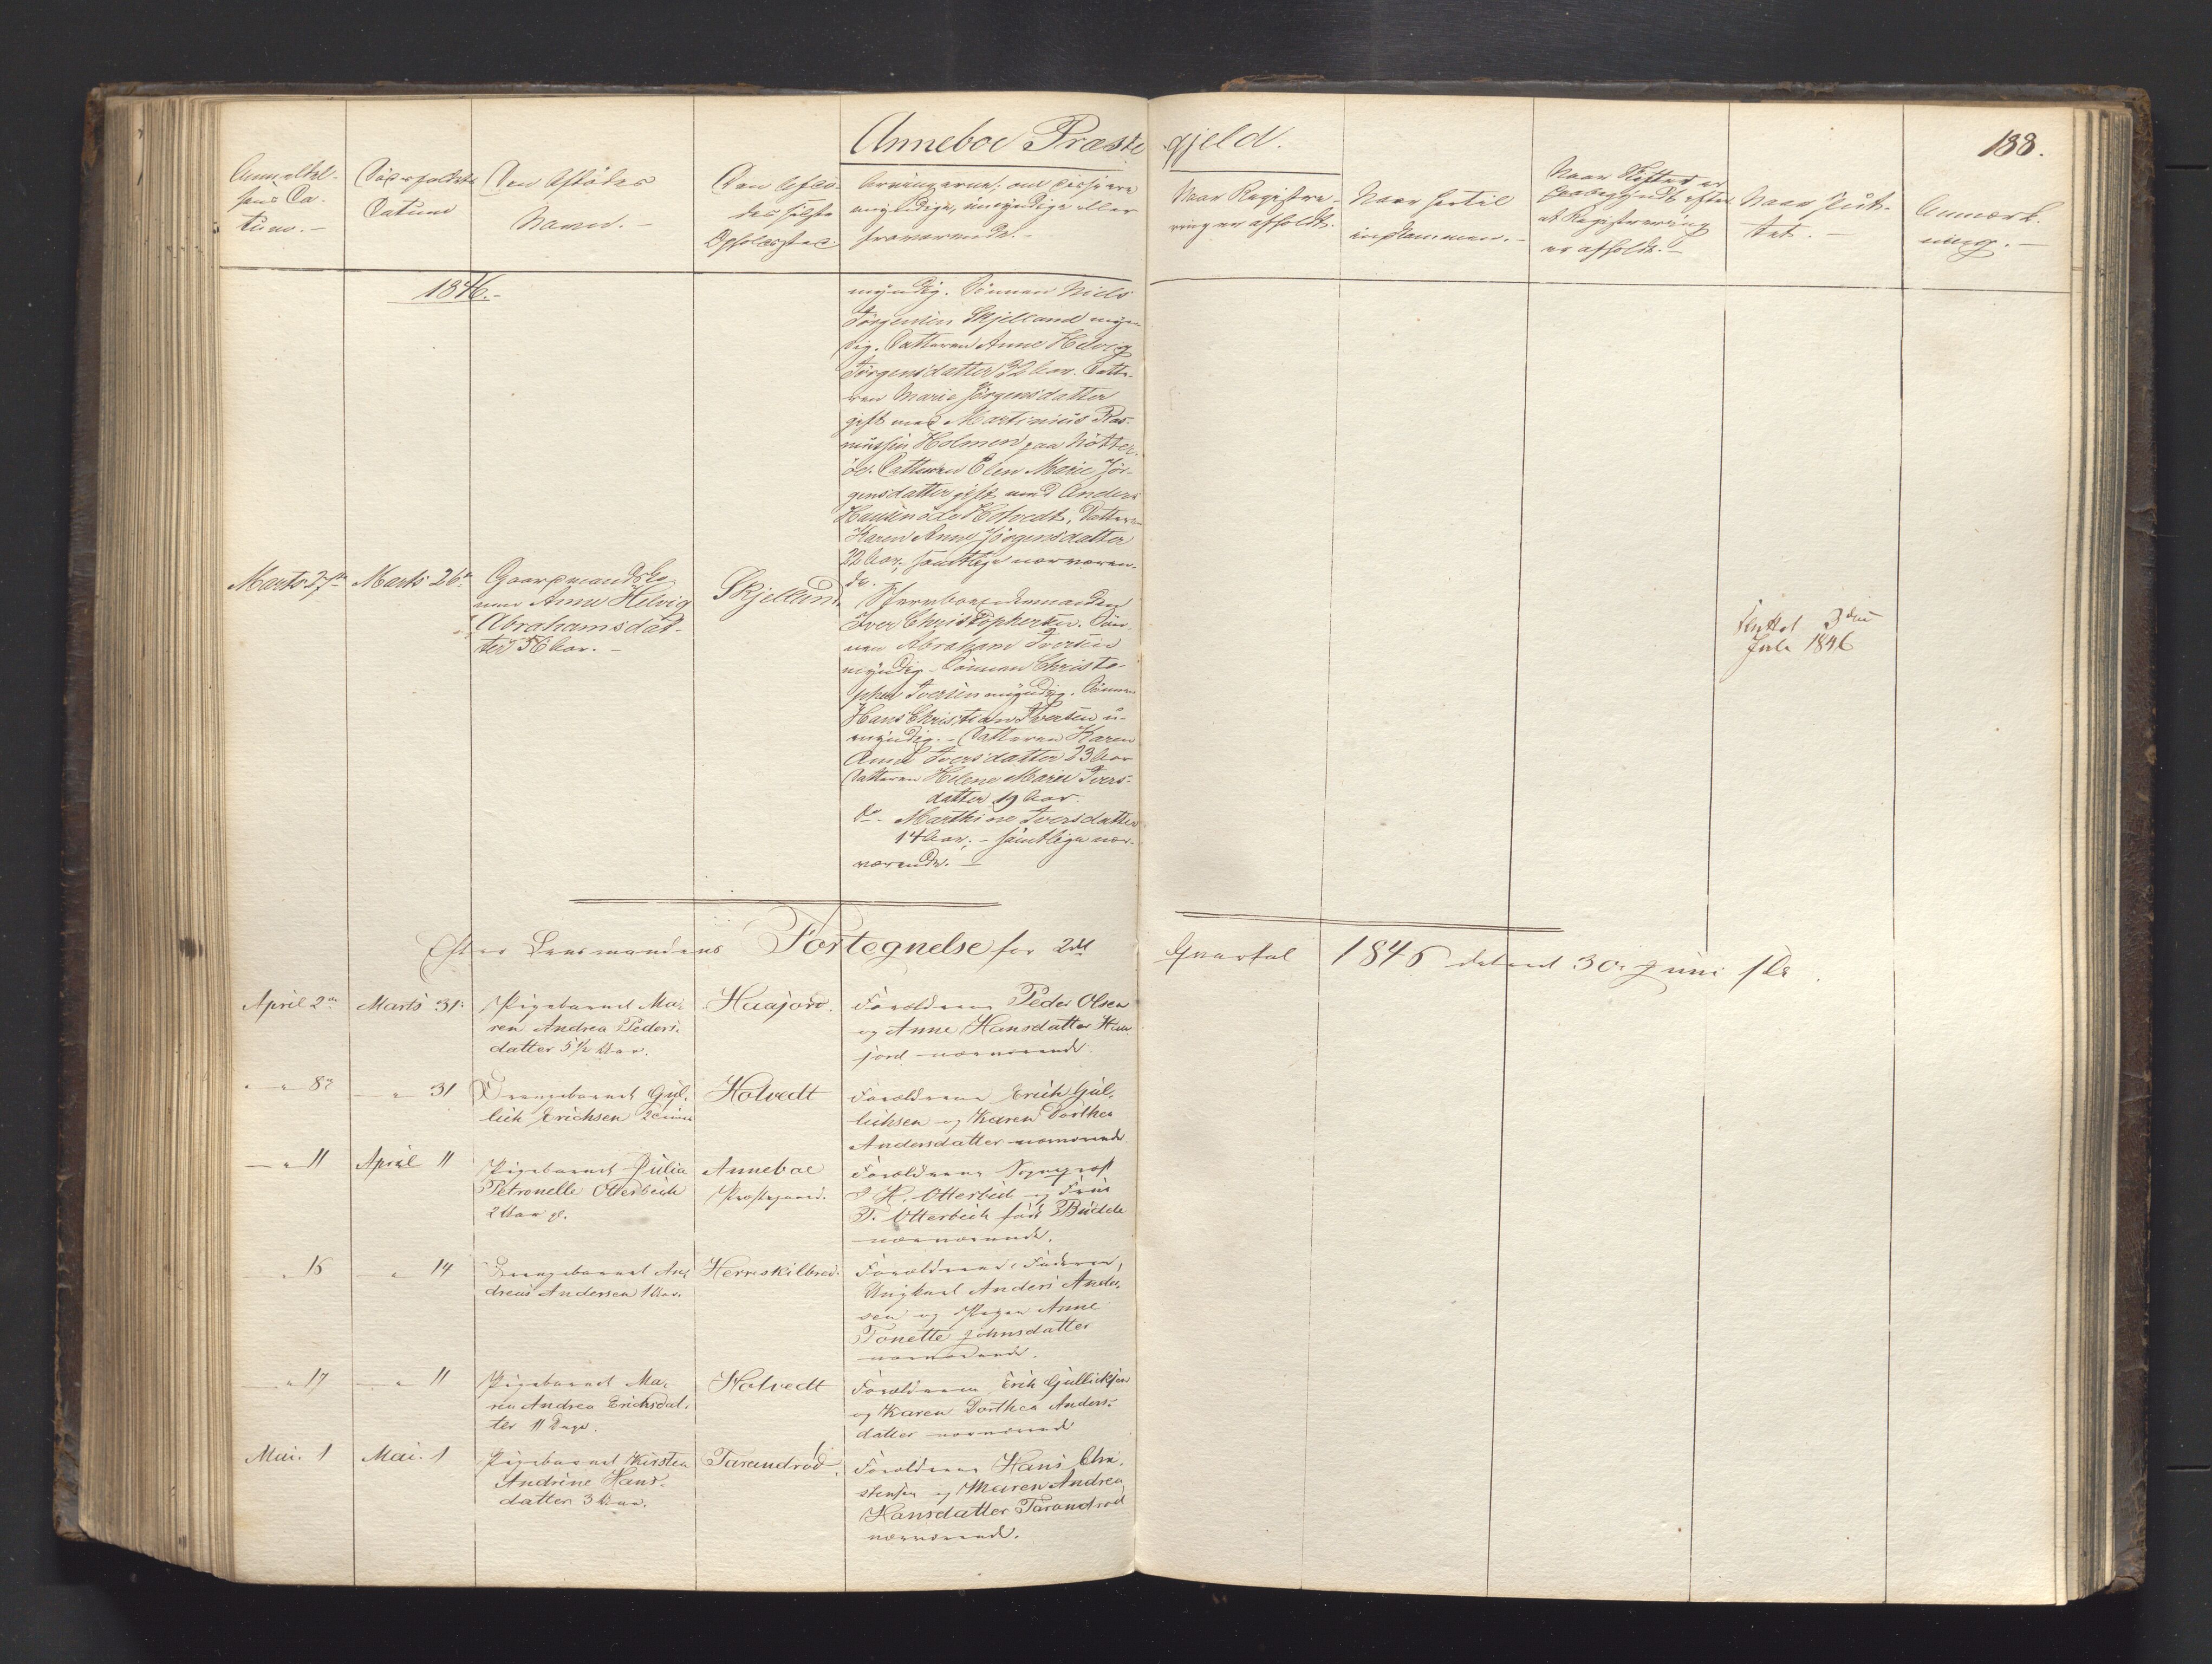 Anneboe Præstegjeld.
188.
Anmeldel-
sens Da-
tum. -
Dödsfaldets
Datum
Den Afdödes
Navn. -
Den Afdö-
des sidste
Opholdssted.
Arvingerne; om disse ere
myndige, umyndige eller
fraværende. -
Naar Registre-
ringen afholdt.
Naar hertil
indkommen. -
Naar Skiftet er
paabegyndt efter
at Registrering
er afholdt. -
Naar slut-
tet. -
Anmærk-
ning. -
1846. -
myndig. Sönnen Niels
Jörgensen Skjelland myn-
dig. Datteren Anne Helvig
Jörgensdatter 32 Aar. Datte-
ren Marie Jörgensdatter
gift med Martinius Ras-
mussen Holmen paa Nötter-
öe. Datteren Elen Marie Jör-
gensdatter gift med Anders
Hansen Holvedt, Datteren
Karen Anne Jörgensdatter
22 Aar, samtlige nærværen-
de.
Marts 27de
Marts 26de
Gaardmandsko-
nen Anne Helvig
Abrahamsdat-
ter 56 Aar. -
Skjelland
Iver Christophersen. Sön-
nen Abraham Iversen
myndig. Sönnen Christo-
pher Iversen myndig. Sönnen
Hans Christian Iversen u-
myndig. - Datteren Karen
Anne Iversdatter 23 Aar
Datteren Helene Marie Ivers-
datter 19 Aar.
Do. Marthine Iversdatter
14 Aar; - samtlige nær-
værende. -
3die
Juli 1846
Efter Lensmandens Fortegnelse for 2det Qvartal 1846 dateret 30 Juni
April 2den
Marts 31.
Pigebarnet Ma-
ren Andrea Peders-
datter 5 1/2 Aar.
Haajord.
Forældrene Peder Olsen
og Anne Hansdatter Haa-
jord nærværende.
" 8de
" 31
Drengebarnet Gul-
lich Erichsen
Holvedt
Forældrene Erich Gul-
lichsen og Karen Dorthea
Andersdatter nærværende.
" 11
April 11
Pigebarnet Julia
Petronelle Otterbech
2 Aar gl.
Anneboe
Præstegaard.
Forældrene Sognepræst
J H. Otterbech og Frue
T. Otterbech föd Budde
nærværende.
" 15
" 14
Drengebarnet An-
dreas Andersen 1 Aar.
Herreskilbred.
Forældrene: Faderen,
Ungkarl Anders Ander-
sen og Pigen Anne
Tonette Johnsdatter
nærværende.
" 17
" 11
Pigebarnet Ma-
ren Andrea Erichsdat-
ter 11 Dage.
Holvedt
Forældrene Erik Gullichsen
og Karen Dorthea Anders-
datter nærværende
Mai. 1
Mai. 1
Pigebarnet Kirsten
Andrine Hans-
datter 3 Aar.
Tarandröd.
Forældrene Hans Chri-
stensen og Maren Andrea
Hansdatter Tarandröd
nærværende.